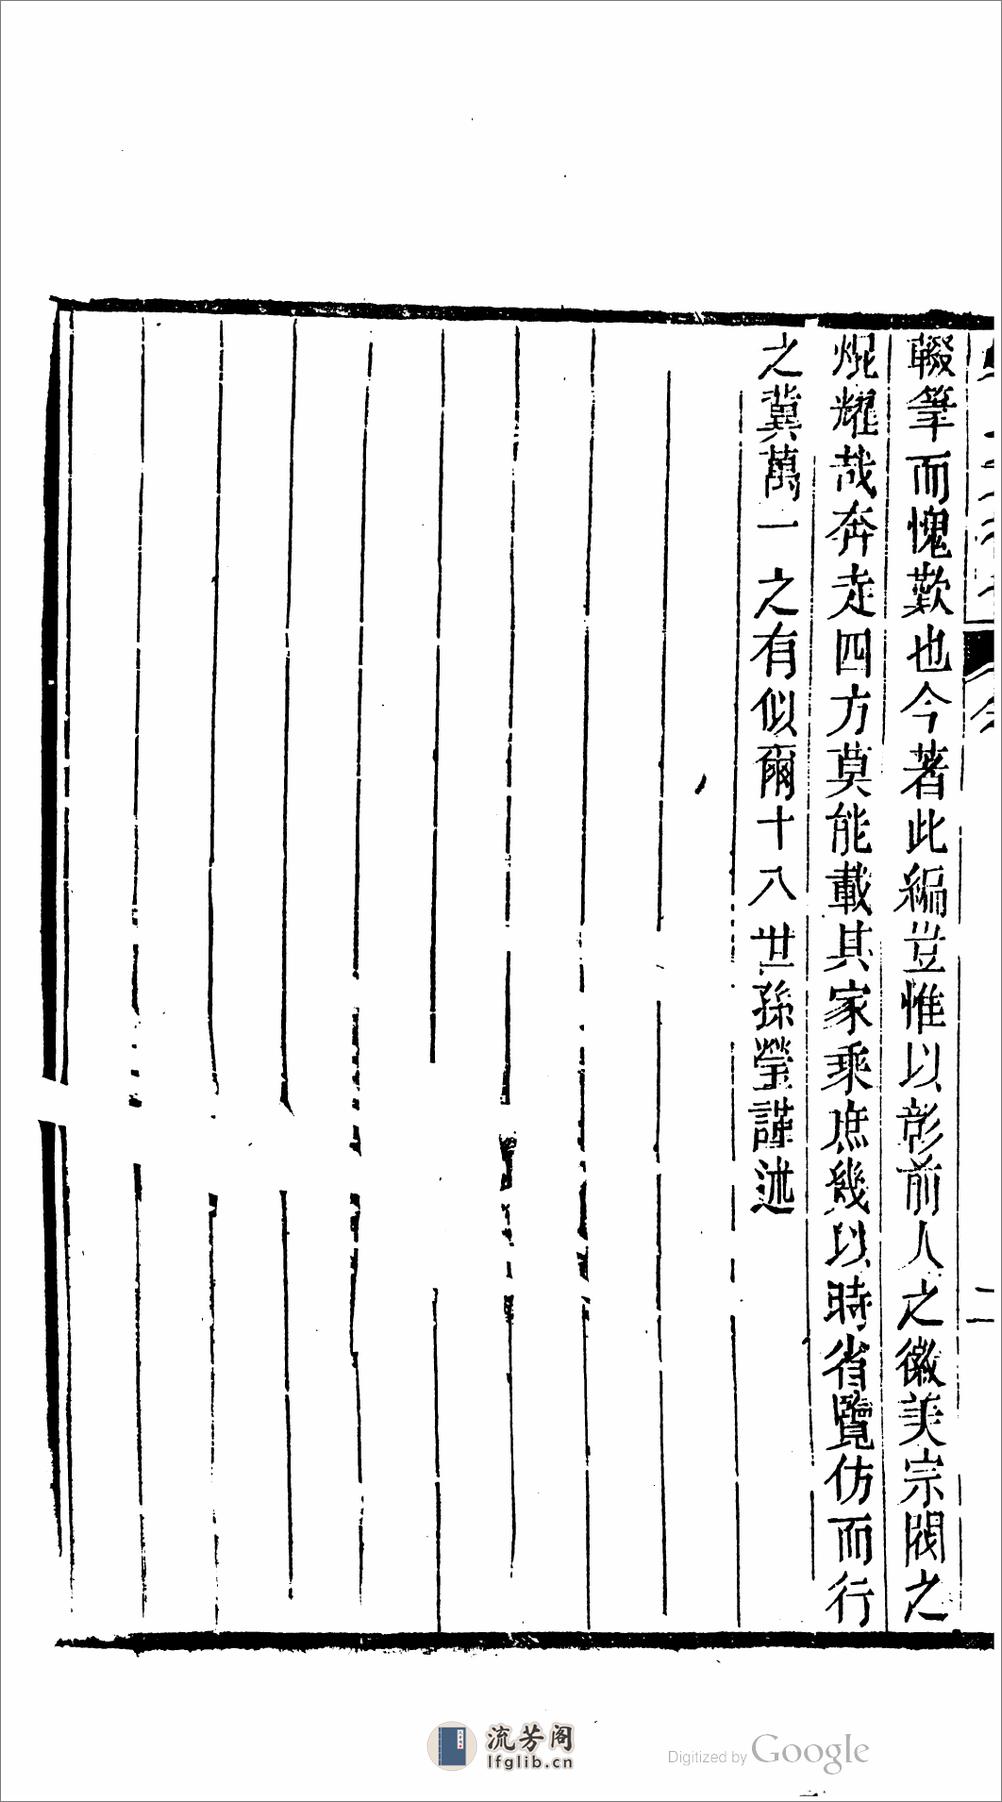 輟筆而愧歎也今著此編豈惟以彰前人之徽美宗閥之
焜耀哉奔走四方莫能載其家乘庶幾以時省覽仿而行
之冀萬一之有似爾十八世孫瑩謹述
流芳阁
lfglib.cn
Digitized by Google